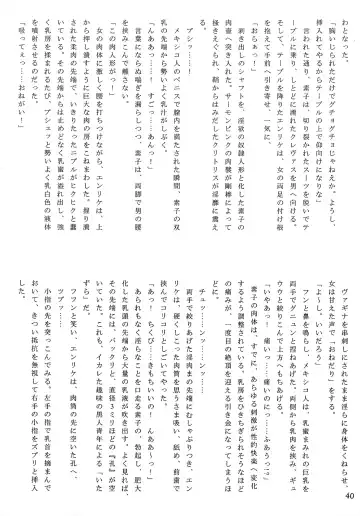 わとなった。
「胸いじられただけでグチョグチョじゃねえか。ようし、
挿れてやるからテーブルの上で仰向けになりな」
言われた通り、素子は、切り裂かれたスーツを脱いでテー
ブルに乗り、しとどに濡れたクレヴァスを男へ向ける。
そしてテーブルを降りたエンリケは、女の両足の付け根
を抱えて手前へ引き寄せ、一気に。
「おらぁぁっ!」
剥き出しのシャフトを、淫欲の奴隷人形と化した素子の
肉壺へ突き挿れた。サーモンピンクの肉襞が剛棒によって
掻きえぐられ、鞘からはみだしたクリトリスが淫靡に震え
る。
プシュ――ッ!
メキシコ人のペニスで膣内を満たされた瞬間、素子の双
乳の先端から勢いよく乳汁がしぶく。
「んああっ……! すっごっ……んああ――っ!」
言葉にならぬ喘ぎを漏らしつつ、素子は、両脚で男の腰
を挟みこんで離さない。
「この肉人形が、いくぜ!」
女の肉体に激しく腰を打ちつけながら、エンリケは、上
から押し潰すように巨大な肉の房をこねまわした。搾り潰
された柔肉の先端で、いきりたったニプルがヒクヒクと蠢
いている。その先端からは止めどなく乳蜜が溢れ出し、強
く乳房を揉まれるたび、プシュッと勢いよく乳白色の液体
を噴射させるのだった。
「吸ってぇっ……おねがぃ!」
ヴァギナを串刺しにされたまま淫らに身体をくねらせ、
女は甘えた声で「おねだり」をする。
「よーし、いいだろう」
フンと鼻を鳴らし、メキシコ人は、乳蜜まみれの巨乳を
両手でグニュングニュン捏ねあげた。両側から乳肉を挟み、ギュ
ウウと絞りこんで上方へもちあげる。
「いやあっ! 痛いっ……痛いのにっ……」
素子の肉体は、すでに、あらゆる刺激が性的快楽へ変化
するよう調整されている。乳房がひきちぎられそうなほど
の痛みが、一度目の絶頂を迎える引き金になってしまうほ
どに。
チュッ……ンッ……ンッ……
両手で絞りあげた淫肉の先端にむしゃぶりつき、エン
リケは、硬くしこった肉筒を思うさま吸い、舐め、前歯で
挟んでコリコリとしごいてやった。
「あっ! ちくびっ……きもちいいのーっ!」
あられもなく淫らなことを口走る素子の、勃起し、肥大
化した乳頭の先端から大量の乳液が吹き出す。よく見れば、
その先端には、パックリと、直径三ミリほどの『孔』が空
けられていた。イカレた趣味の黒人青年による「いた
ずら」だ。
フフンと笑い、エンリケは、肉筒の先に空いた孔へ、
ツプッ……
小指の先を突っこんでみる。左手の指で乳首を摘まんで
おいて、きつい抵抗を無視して右手の小指をズブリと挿入
した。
40